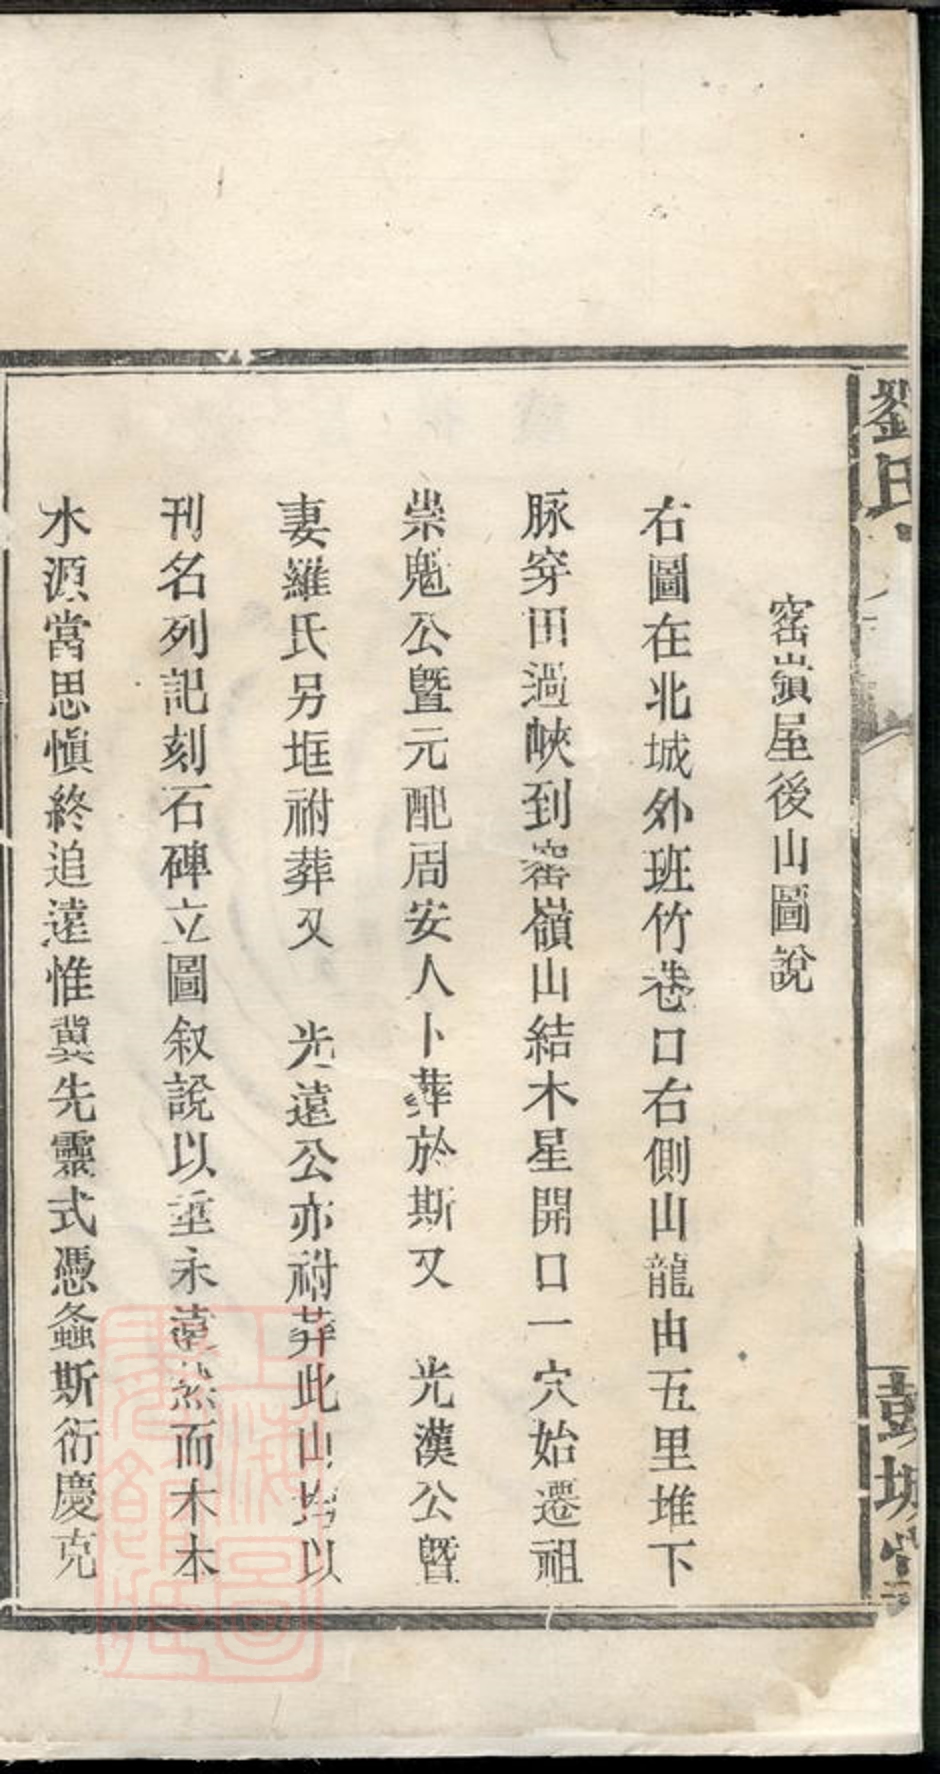 劉氏
彭城堂
窰嶺屋後山圖說
右圖在北城外班竹巷口右側山龍由五里堆下
脉穿田過峽到窰嶺山結木星開口一穴始遷祖
崇魁公暨元配周安人卜葬於斯又　光漢公暨
妻羅氏另堆祔葬又　光遠公亦祔葬此山均以
刊名列記刻石碑立圖叙說以垂永遠然而木本
水源當思慎終追遠惟冀先靈式憑螽斯衍慶克
上海圖書館藏